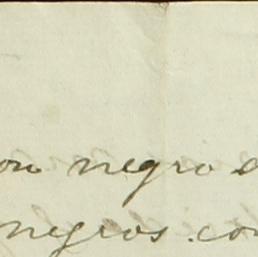 negro
negros. con